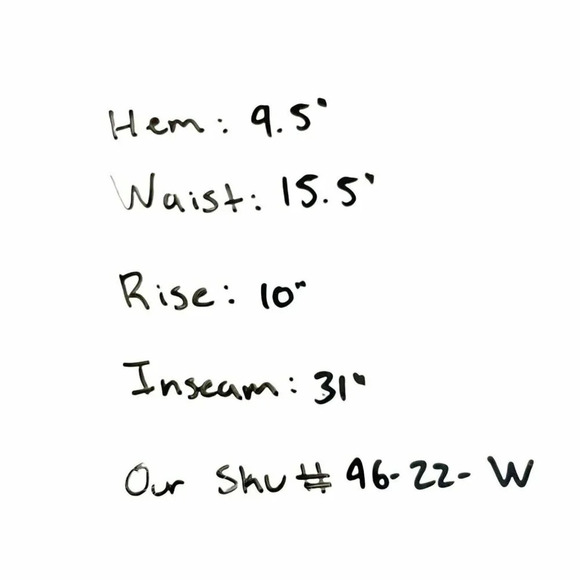 Hem: 9.5"
Waist: 15.5"
Rise: 10"
Inseam: 31"
Our Sku # 96-22-W